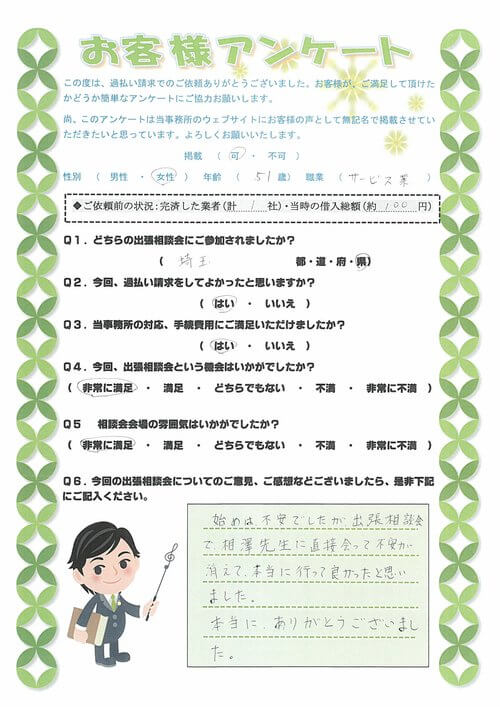 お客様アンケート
この度は、過払い請求でのご依頼ありがとうございました。お客様が、ご満足して頂けた
かどうか簡単なアンケートにご協力お願いします。
尚、このアンケートは当事務所のウェブサイトにお客様の声として無記名で掲載させてい
ただきたいと思っています。よろしくお願いいたします。
掲載 ( 可 ・ 不可 )
性別 ( 男性 ・ 女性 ) 年齢 ( 51歳) 職業 ( サービス業 )
◆ご依頼前の状況:完済した業者(計 1 社)・当時の借入総額(約 100 円)
Q1.どちらの出張相談会にご参加されましたか?
( 埼玉 都・道・府・県)
Q2.今回、過払い請求をしてよかったと思いますか?
( はい ・ いいえ )
Q3.当事務所の対応、手続費用にご満足いただけましたか?
( はい ・ いいえ )
Q4.今回、出張相談会という機会はいかがでしたか?
( 非常に満足 ・ 満足 ・ どちらでもない ・ 不満 ・ 非常に不満 )
Q5 相談会会場の雰囲気はいかがでしたか?
( 非常に満足 ・ 満足 ・ どちらでもない ・ 不満 ・ 非常に不満 )
Q6.今回の出張相談会についてのご意見、ご感想などございましたら、是非下記
にご記入ください。
始めは不安でしたが、出張相談会
で、相澤先生に直接会って不安が
消えて、本当に行って良かったと思い
ました。
本当に、ありがとうございまし
た。